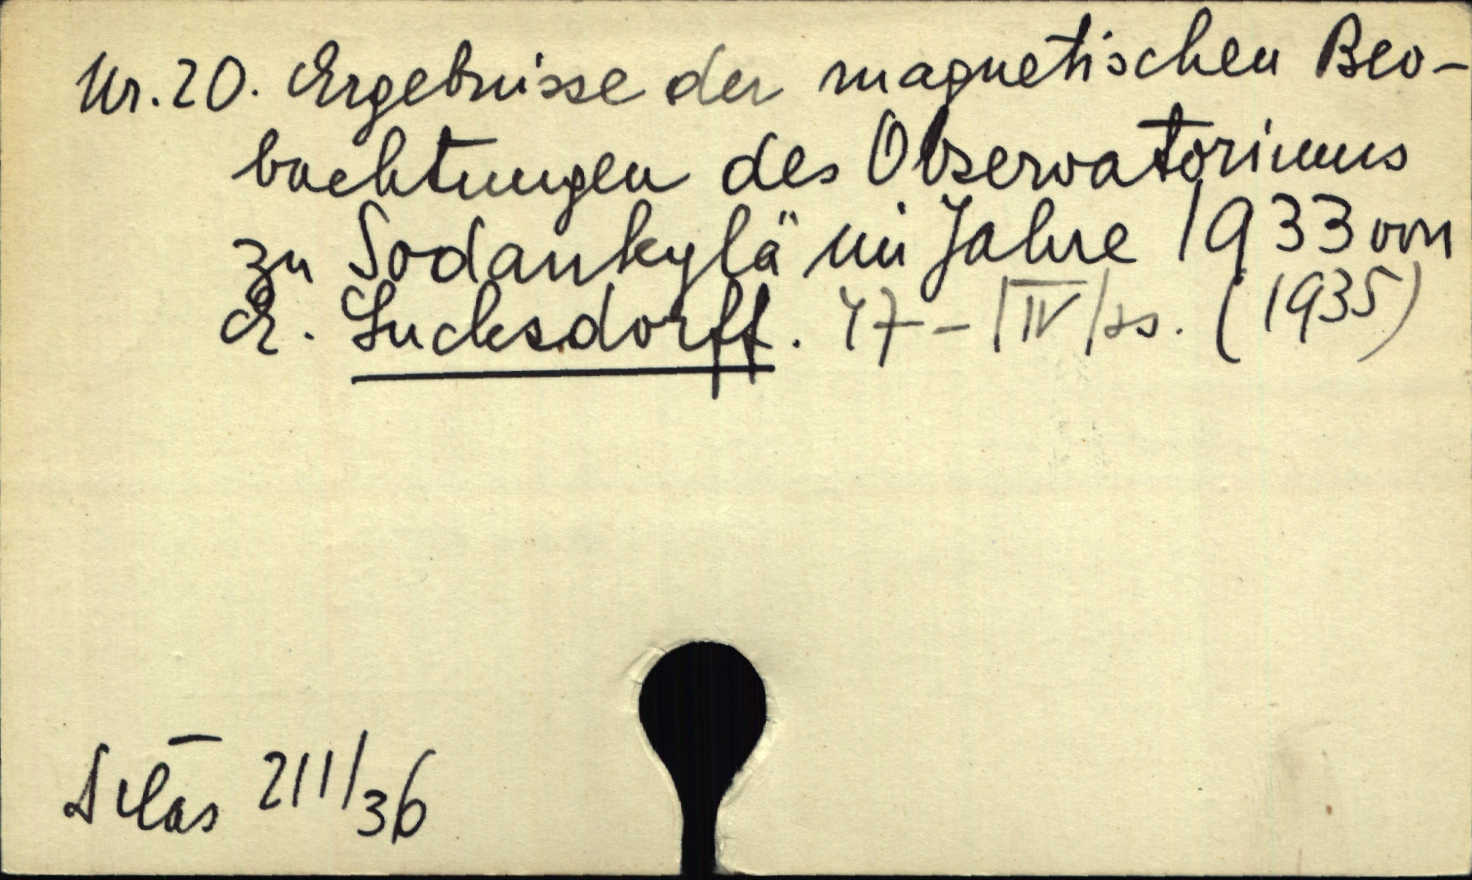 Nr. 20. Ergebnisse der magnetischen Beo-
bachtungen des Observatoriums
zu Sodankylä im Jahre 1933 von
E. Sucksdorff. 47 - |IV| ss. (1935)
211/36